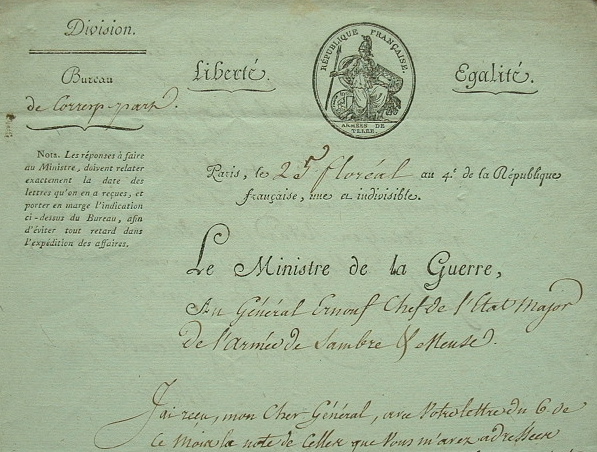 Division.
Bureau
de Corresp. part.
Liberté.
RÉPUBLIQUE FRANÇAISE.
ARMÉES DE
TERRE.
Egalité.
NOTA. Les réponses à faire
au Ministre, doivent relater
exactement la date des
lettres qu'on en a reçues, et
porter en marge l'indication
ci-dessus du Bureau, afin
d'éviter tout retard dans
l'expédition des affaires.
Paris, le floréal au 4e. de la République
française, une et indivisible.
Le Ministre de la Guerre,
Au Général Ernouf Chef de l'Etat Major
de l'armée de Sambre & Meuse.
J'ai reçu, mon Cher Général, avec votre lettre du 6 de
ce mois la note de celles que vous m'avez